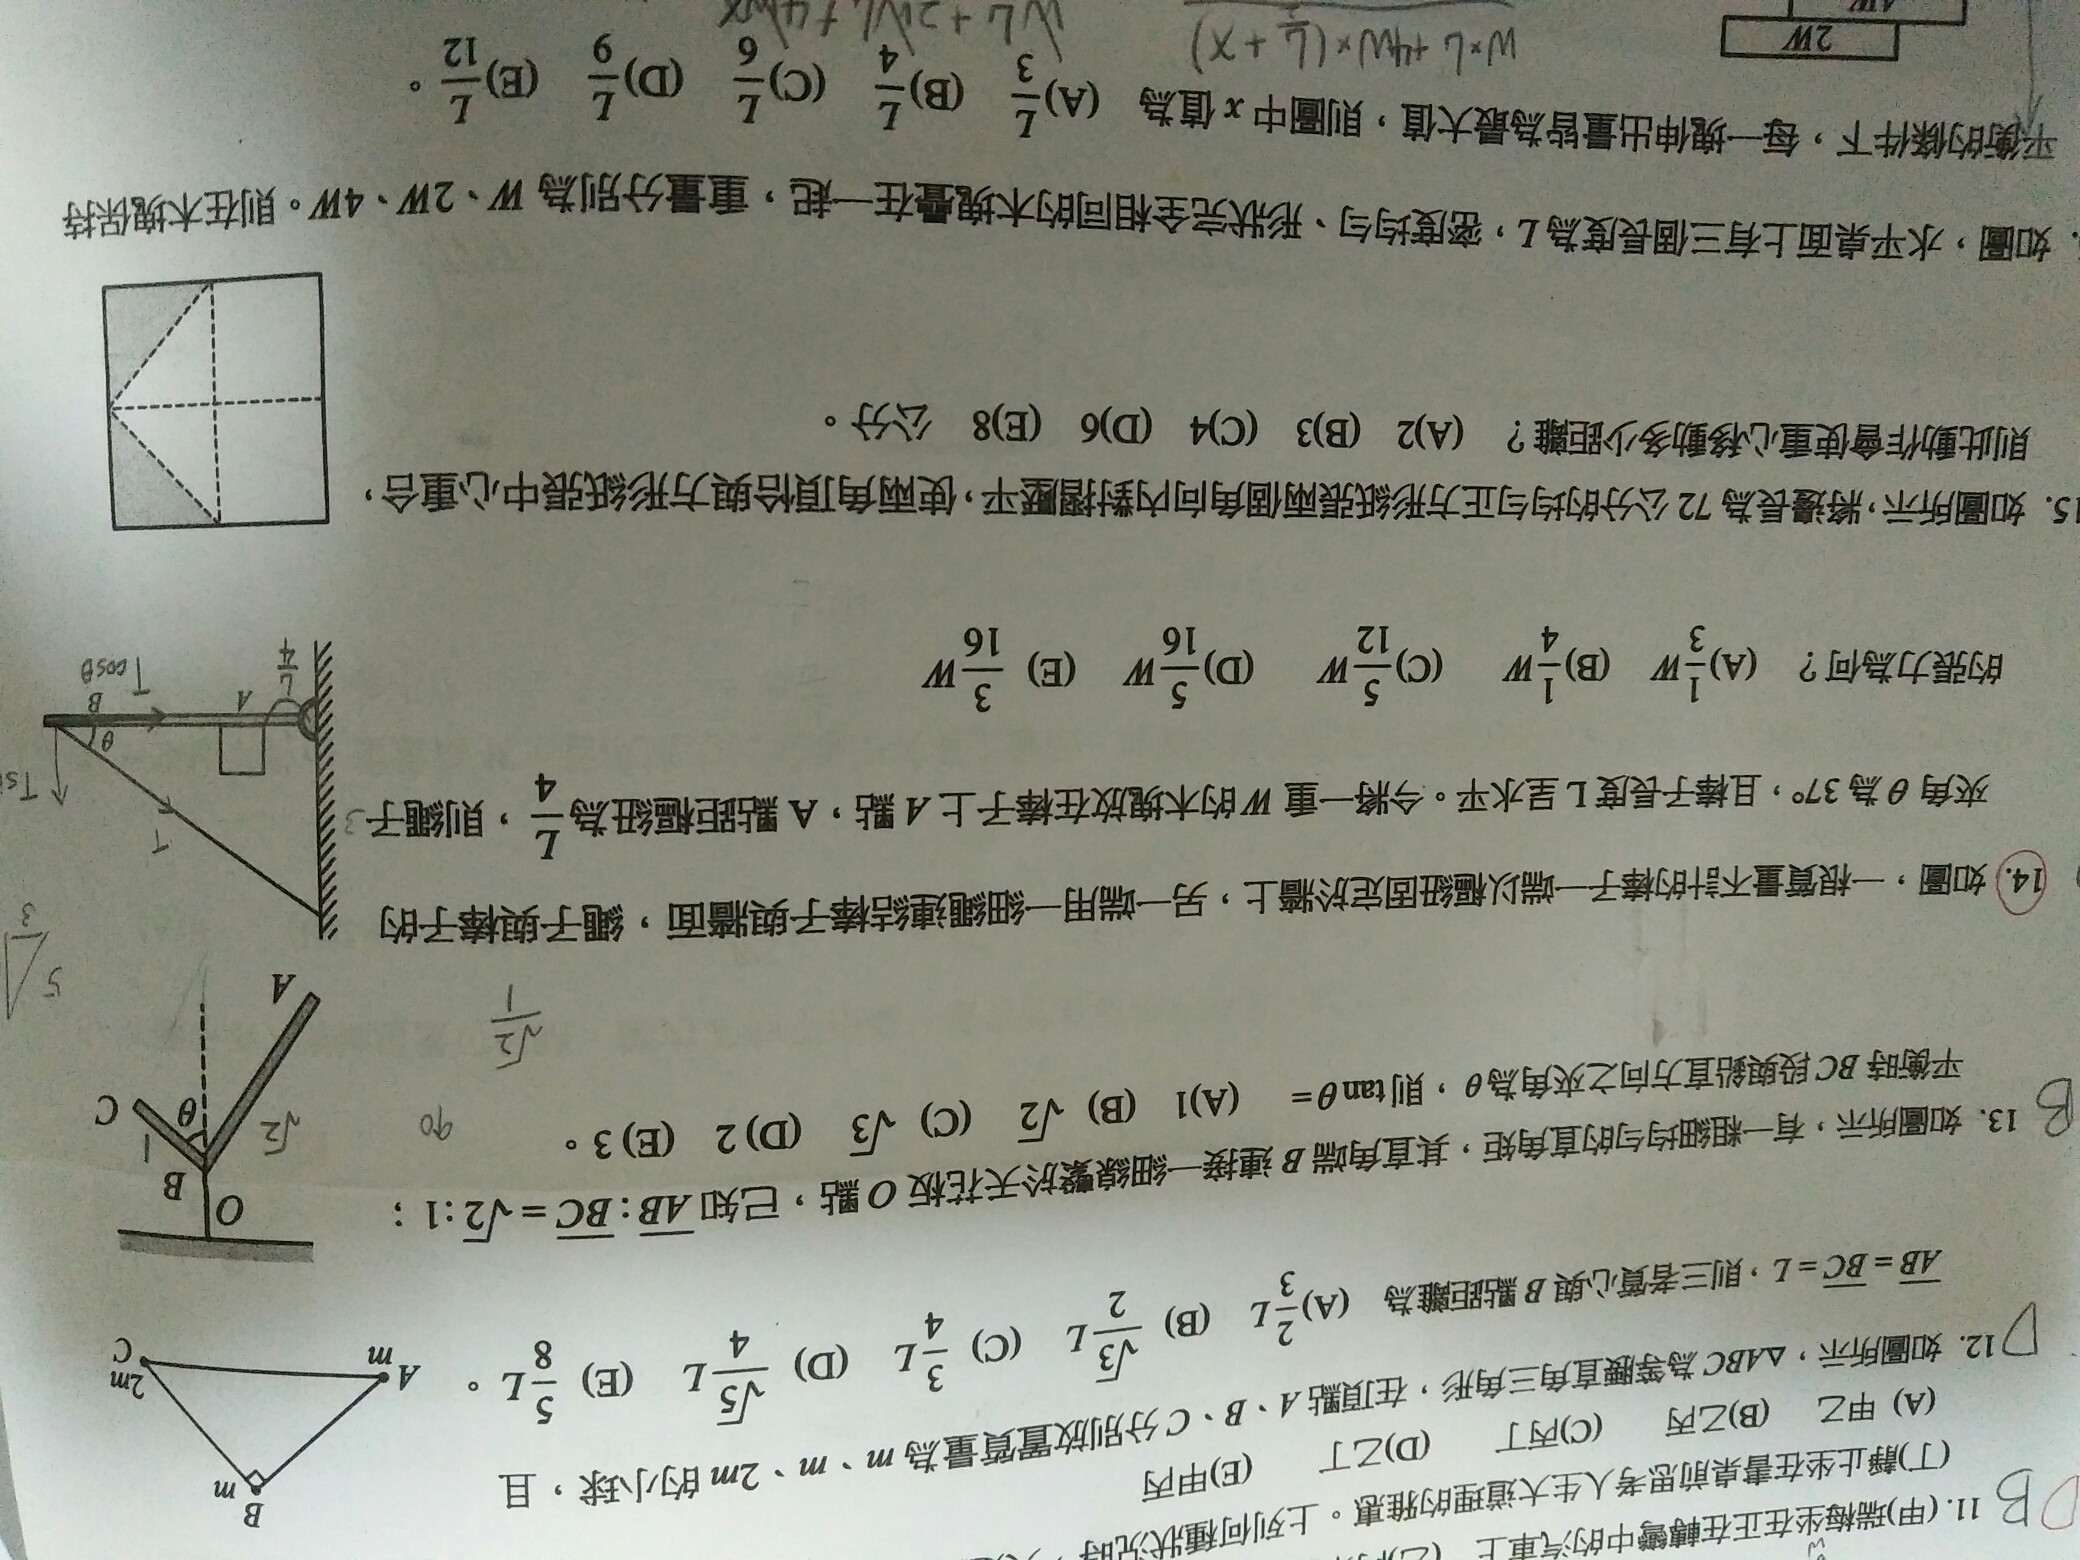 11. (甲)瑞梅坐在正在轉彎中的汽車上
(丁)靜止坐在書桌前思考人生大道理的雅惠。上列何種狀況時，
(A) 甲乙 (B)乙丙 (C)丙丁 (D)乙丁 (E)甲丙
D B
12. 如圖所示，△ABC為等腰直角三角形，在頂點A、B、C分別放置質量為m、m、2m的小球，且
AB = BC = L，則三者質心與B點距離為 (A) 2/3 L (B) √3/2 L (C) 3/4 L (D) √5/4 L (E) 5/8 L。
D
B
m
A
m
C
2m
13. 如圖所示，有一粗細均勻的直角矩，其直角端B連接一細線繫於天花板O點，已知AB : BC = √2 : 1；
平衡時BC段與鉛直方向之夾角為θ，則tanθ= (A)1 (B) √2 (C) √3 (D) 2 (E) 3。
B
90
√2/1
O
B
√2
1
θ
C
A
14. 如圖，一根質量不計的棒子一端以樞紐固定於牆上，另一端用一細繩連結棒子與牆面，繩子與棒子的
夾角θ為37°，且棒子長度L呈水平。今將一重W的木塊放在棒子上A點，A點距樞紐為L/4，則繩子
的張力為何？ (A) 1/3 W (B) 1/4 W (C) 5/12 W (D) 5/16 W (E) 3/16 W
5
3
T
θ
A
B
L/4
T cosθ
15. 如圖所示，將邊長為72公分的均勻正方形紙張兩個角向內對摺壓平，使兩角頂恰與方形紙張中心重合，
則此動作會使重心移動多少距離？ (A)2 (B)3 (C)4 (D)6 (E)8 公分。
如圖，水平桌面上有三個長度為L，密度均勻、形狀完全相同的木塊疊在一起，重量分別為W、2W、4W。則在木塊保持
平衡的條件下，每一塊伸出量皆為最大值，則圖中x值為 (A) L/3 (B) L/4 (C) L/6 (D) L/9 (E) L/12。
W×L+4W×(L/2+X)
WL+2WL+4WX
2W
4W